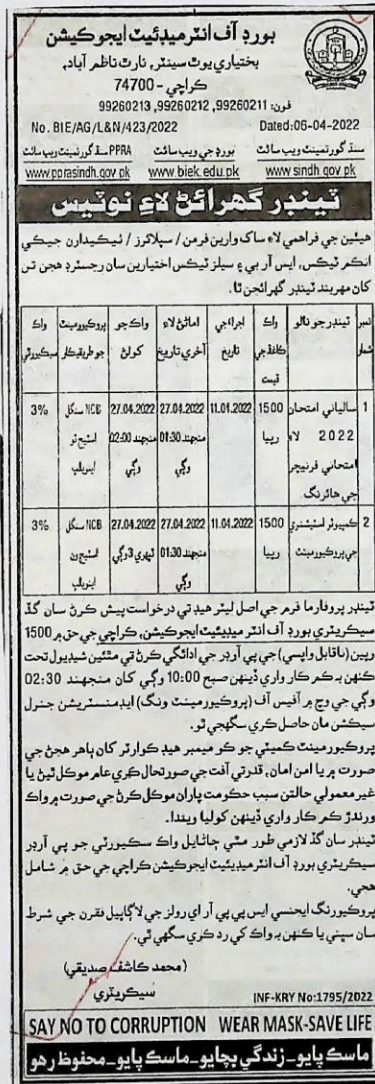 بورڊ آف انٽرميڊئيٽ ايجوڪيشن
بختياري يوٿ سينٽر، نارٿ ناظم آباد،
ڪراچي - 74700
فون: 99260211, 99260212, 99260213
No. BIE/AG/L&N/423/2022 Dated:06-04-2022
سنڌ گورنمينٽ ويب سائيٽ بورڊ جي ويب سائيٽ PPRA سنڌ گورنمينٽ ويب سائيٽ
www.pprasindh.gov.pk www.biek.edu.pk www.sindh.gov.pk
ٽينڊر گهرائڻ لاءِ نوٽيس
هيٺين جي فراهمي لاءِ ساک وارين فرمن / سپلائرز / ٺيڪيدارن جيڪي
انڪم ٽيڪس، ايس آر بي ۽ سيلز ٽيڪس اختيارين سان رجسٽرڊ هجن تن
کان مهربند ٽينڊر گهرائجن ٿا.
نمبر شمار ٽينڊر جو نالو واڪ ڪاغذ جي قيمت اجراء جي تاريخ اماڻڻ لاءِ آخري تاريخ واڪ جو کولڻ پروڪيورمينٽ جو طريقڪار واڪ سيڪيورٽي
1 سالياني امتحان 2022 لاءِ امتحاني فرنيچر جي هائرنگ 1500 رپيا 11.04.2022 27.04.2022 منجهند 01:30 وڳي 27.04.2022 منجهند 02:00 وڳي NCB سنگل اسٽيج ٽو اينويلپ 3%
2 ڪمپيوٽر اسٽيشنري جي پروڪيورمينٽ 1500 رپيا 11.04.2022 27.04.2022 منجهند 01:30 وڳي 27.04.2022 ٽپهري 3 وڳي NCB سنگل اسٽيج ون اينويلپ 3%
ٽينڊر پروفارما فرم جي اصل ليٽر هيڊ تي درخواست پيش ڪرڻ سان گڏ
سيڪريٽري بورڊ آف انٽرميڊيئيٽ ايجوڪيشن، ڪراچي جي حق ۾ 1500
رپين (ناقابل واپسي) جي پي آرڊر جي ادائگي ڪرڻ تي مٿئين شيڊيول تحت
ڪنهن به ڪم ڪار واري ڏينهن صبح 10:00 وڳي کان منجهند 02:30
وڳي جي وچ ۾ آفيس آف (پروڪيورمينٽ ونگ) ايڊمنسٽريشن جنرل
سيڪشن مان حاصل ڪري سگهجي ٿو.
پروڪيورمينٽ ڪميٽي جو ڪو ميمبر هيڊ ڪوارٽر کان ٻاهر هجڻ جي
صورت ۾ يا امن امان، قدرتي آفت جي صورتحال ڪري عام موڪل ٿيڻ يا
غير معمولي حالتن سبب حڪومت پاران موڪل ڪرڻ جي صورت ۾ واڪ
ورندڙ ڪم ڪار واري ڏينهن کوليا ويندا.
ٽينڊر سان گڏ لازمي طور مٿي ڄاڻايل واڪ سڪيورٽي جو پي آرڊر
سيڪريٽري بورڊ آف انٽرميڊيئيٽ ايجوڪيشن ڪراچي جي حق ۾ شامل
هجي.
پروڪيورنگ ايجنسي ايس پي پي آر اي رولز جي لاڳاپيل فقرن جي شرط
سان سڀني يا ڪنهن به واڪ کي رد ڪري سگهي ٿي.
(محمد ڪاشف صديقي)
سيڪريٽري
INF-KRY No:1795/2022
SAY NO TO CORRUPTION WEAR MASK-SAVE LIFE
ماسڪ پايو - زندگي بچايو - ماسڪ پايو - محفوظ رهو